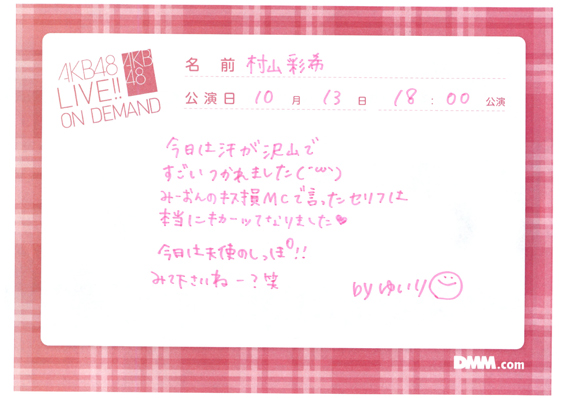 AKB48
LIVE!!
ON DEMAND
AKB
48
名 前 村山彩希
公演日 10 月 13 日 18 : 00 公演
今日は汗が沢山で
すごいつかれました(´ω`)
みーおんのキス損MCで言ったセリフは
本当にキカーッてなりました♥
今日は天使のしっぽ!!
みて下さいねー?笑
by ゆいり
DMM.com